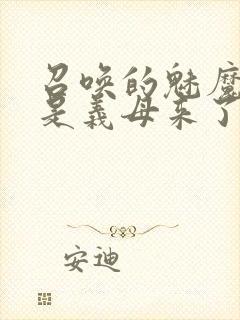 召唤的魅魔
是义母来了
安迪